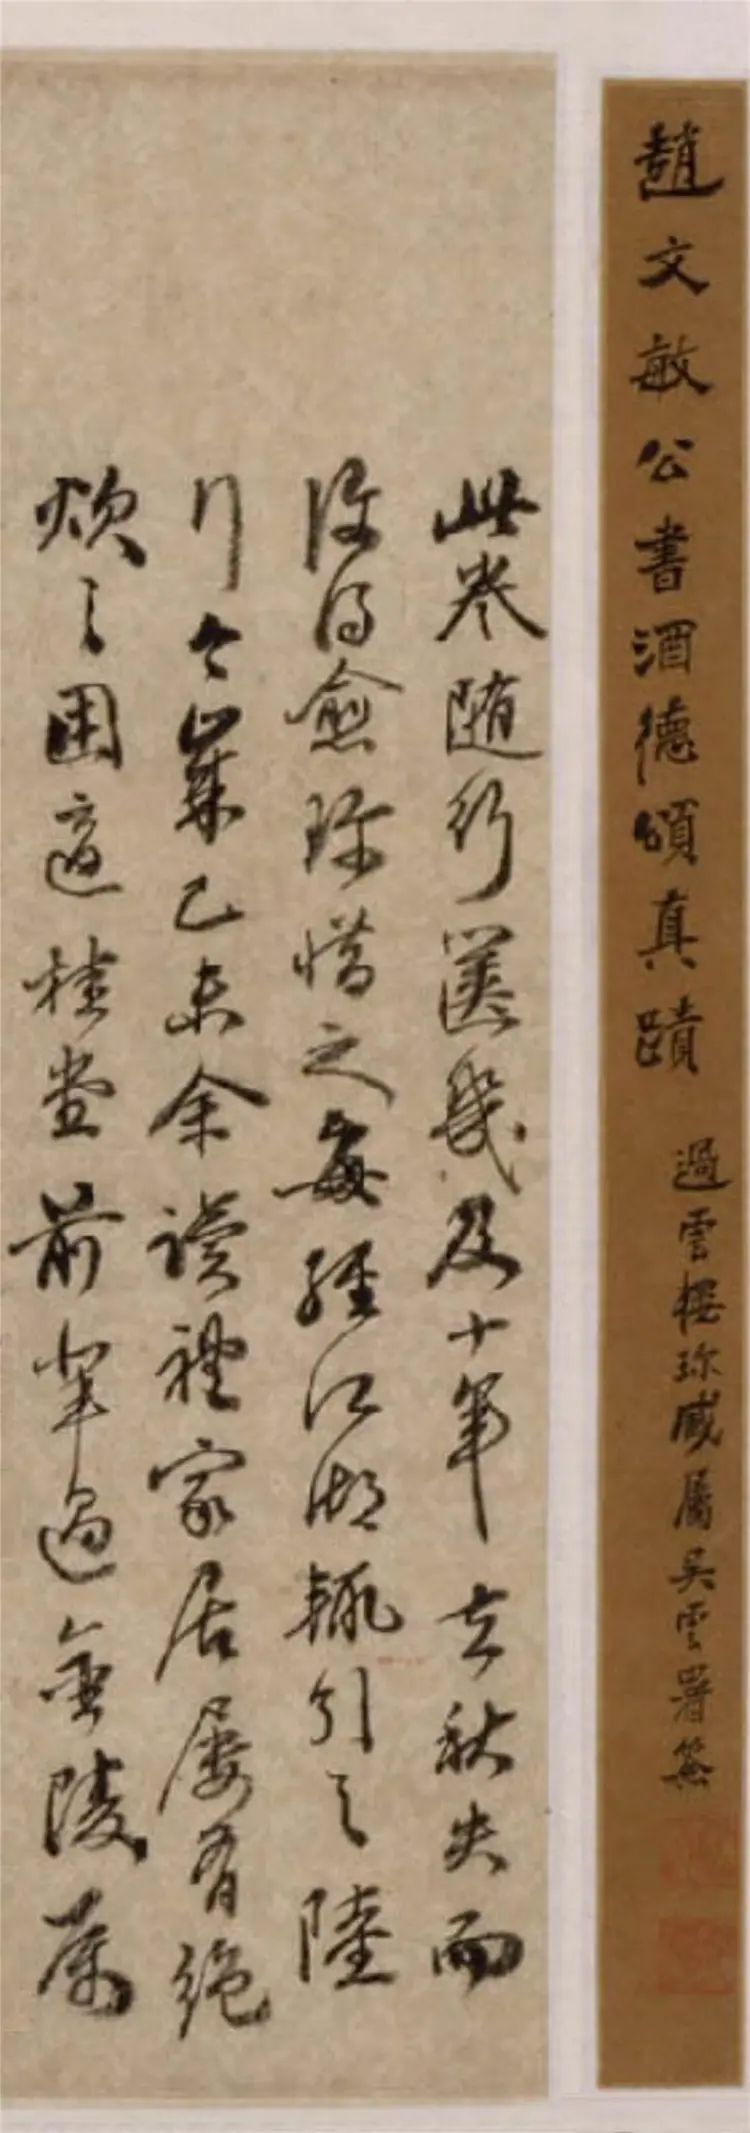 趙文敏公書酒德頌真蹟
過雲樓珍藏屬吳雲署簽
此卷随行篋幾及十年去秋失而
復得愈珍惜之每經江湖輒引之陸
行今歲己未余讀禮家居屢有絕
炊之困適桂堂前輩過金陵屬